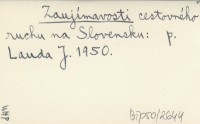 Zaujímavosti cestovného
ruchu na Slovensku: p.
Lauda J. 1950.
Bip50/2644